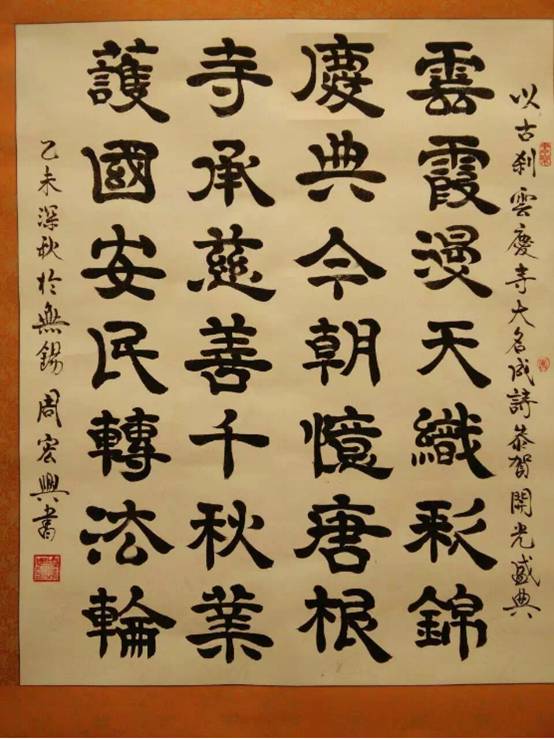 以古刹雲慶寺大名成詩恭賀開光盛典
雲霞漫天織彩錦
慶典今朝憶唐根
寺承慈善千秋業
護國安民轉法輪
乙未深秋於無錫周宏興書